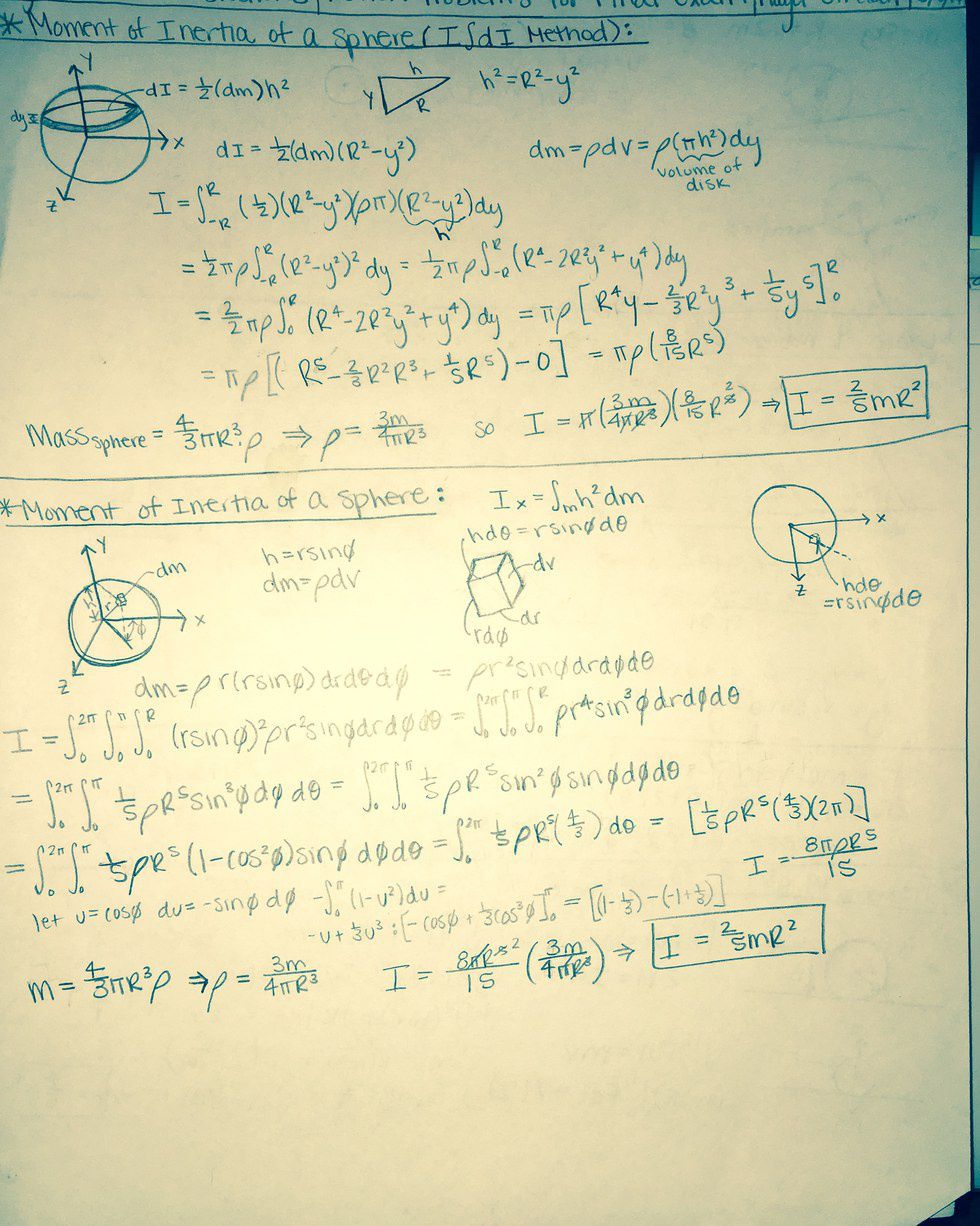 Problems for Final Exam
*Moment of Inertia of a Sphere (I∫dI Method):
Y
dI = ½(dm)h²
h
Y
R
h² = R² - y²
dy
x
z
dI = ½(dm)(R² - y²)
dm = ρdv = ρ(πh²)dy
volume of
disk
I = ∫_{-R}^{R} (½)(R² - y²)(ρπ)(R² - y²)dy
h
= ½πρ∫_{-R}^{R} (R² - y²)² dy = ½πρ∫_{-R}^{R} (R⁴ - 2R²y² + y⁴)dy
= 2/2 πρ∫_0^R (R⁴ - 2R²y² + y⁴)dy = πρ[R⁴y - ⅔R²y³ + ⅕y⁵]_0^R
= πρ[(R⁵ - ⅔R²R³ + ⅕R⁵) - 0] = πρ(8/15 R⁵)
Mass sphere = 4/3 πR³·ρ ⇒ ρ = 3m/4πR³ so I = π(3m/4πR³)(8/15 R⁵²) ⇒ I = ⅖mR²
*Moment of Inertia of a Sphere:
I_x = ∫_m h²dm
Y
dm
h
r
φ
x
z
h = rsinφ
dm = ρdv
hdθ = rsinφdθ
dv
dr
rdφ
x
z
hdθ
= rsinφdθ
dm = ρ r(rsinφ)drdθdφ = ρr²sinφdrdφdθ
I = ∫_0^{2π}∫_0^π∫_0^R (rsinφ)²ρr²sinφdrdφdθ = ∫_0^{2π}∫_0^π∫_0^R ρr⁴sin³φdrdφdθ
= ∫_0^{2π}∫_0^π ⅕ρR⁵sin³φdφdθ = ∫_0^{2π}∫_0^π ⅕ρR⁵sin²φsinφdφdθ
= ∫_0^{2π}∫_0^π ⅕ρR⁵(1-cos²φ)sinφdφdθ = ∫_0^{2π} ⅕ρR⁵(4/3)dθ = [⅕ρR⁵(4/3)(2π)]
I = 8πρR⁵/15
let u = cosφ du = -sinφdφ -∫_0^π(1-u²)du =
-u + ⅓u³ : [-cosφ + ⅓cos³φ]_0^π = [(1-⅓)-(-1+⅓)]
m = 4/3 πR³ρ ⇒ ρ = 3m/4πR³ I = 8πR⁵²/15 (3m/4πR³) ⇒ I = ⅖mR²